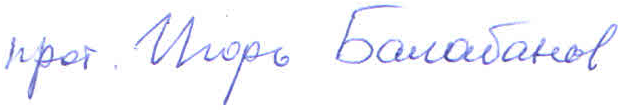 прот. Игорь Балабанов